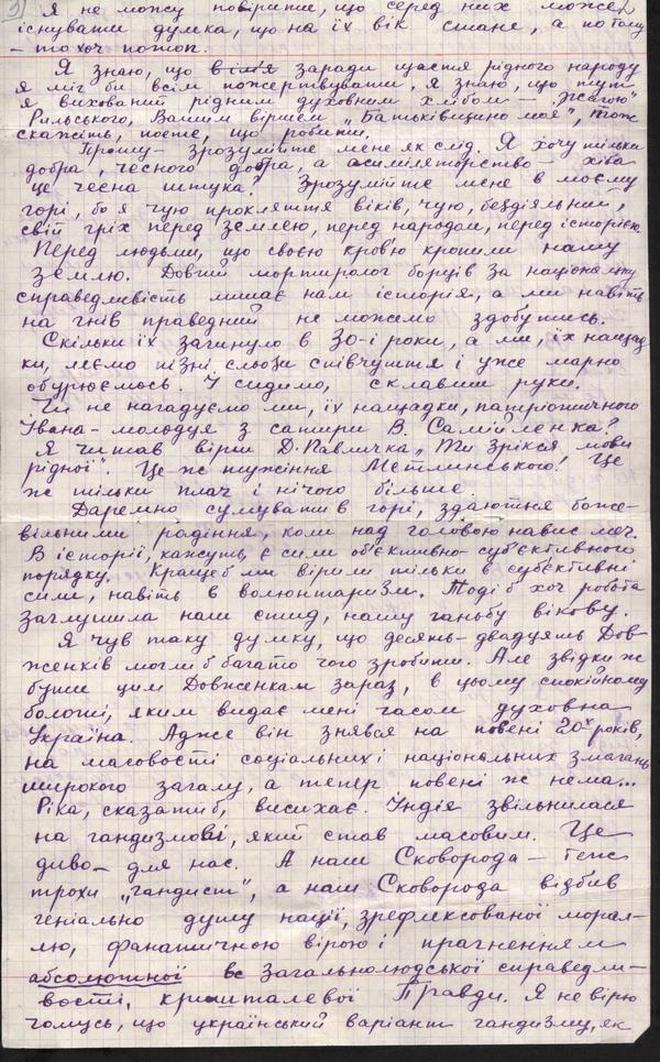 9)
Я не можу повірити, що серед них може
існувати думка, що на їх вік стане, а потому
– то хоч потоп.
Я знаю, що в ім'я заради щастя рідного народу
я міг би всім пожертвувати, я знаю, що тут
я вихований рідним духовним хлібом – „Жагою"
Рильського, Вашим віршем „Батьківщино моя", тож
скажіть, поете, що робити.
Прошу – зрозумійте мене як слід. Я хочу тільки
добра, чесного добра, а асиміляторство – хіба
це чесна штука? Зрозумійте мене в моєму
горі, бо я чую прокляття віків, чую, бездіяльний,
свій гріх перед землею, перед народом, перед історією.
Перед людьми, що своєю кров'ю кропили нашу
землю. Довгий мортиролог борців за національну
справедливість лишає нам історія, а ми навіть
на гнів праведний не можемо здобутись.
Скільки їх загинуло в 30-і роки, а ми, їх нащад
ки, ллємо пізні сльози співчуття і уже марно
обурюємось. І сидимо, склавши руки.
Чи не нагадуємо ми, їх нащадки, патріотичного
Івана – молодця з сатири В. Самійленка?
Я читав вірш Д. Павличка „Ти зрікся мови
рідної". Це ж тужіння Метлинського! Це
ж тільки плач і нічого більше.
Даремно сумувати в горі, здаются боже-
вільними радіння, коли над головою навис меч.
В історії, кажуть, є сили об'єктивно-суб'єктивного
порядку. Краще б ми вірили тільки в суб'єктивні
сили, навіть в волюнтаризм. Тоді б хоч робота
заглушила наш стид, нашу ганьбу вікову.
Я чув таку думку, що десять-двадцять Дов-
женків могли б багато чого зробити. Але звідки ж
бути цим Довженкам зараз, в цьому спокійному
болоті, яким видає мені часом духовна
Україна. Адже він знявся на повені 20х років,
на масовості соціальних і національних змагань
широкого загалу, а тепер повені ж нема...
Ріка, сказати б, висихає. Індія звільнилася
на гандизмові, який став масовим. Це
диво – для нас. А наш Сковорода – теж
трохи „гандист", а наш Сковорода відбив
геніально душу нації, зрефлексованої морал-
лю, фанатичною вірою і прагненням
абсолютної вс загальнолюдської справедли-
вості, кришталевої Правди. Я не вірю
чомусь, що український варіант гандизму, як